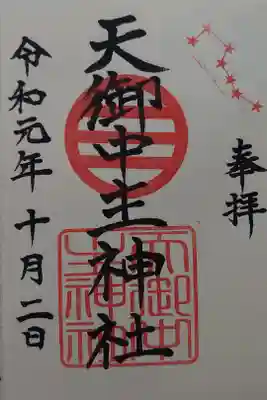 奉拝
天御中主神社
令和元年十月二日
天御中
主神社